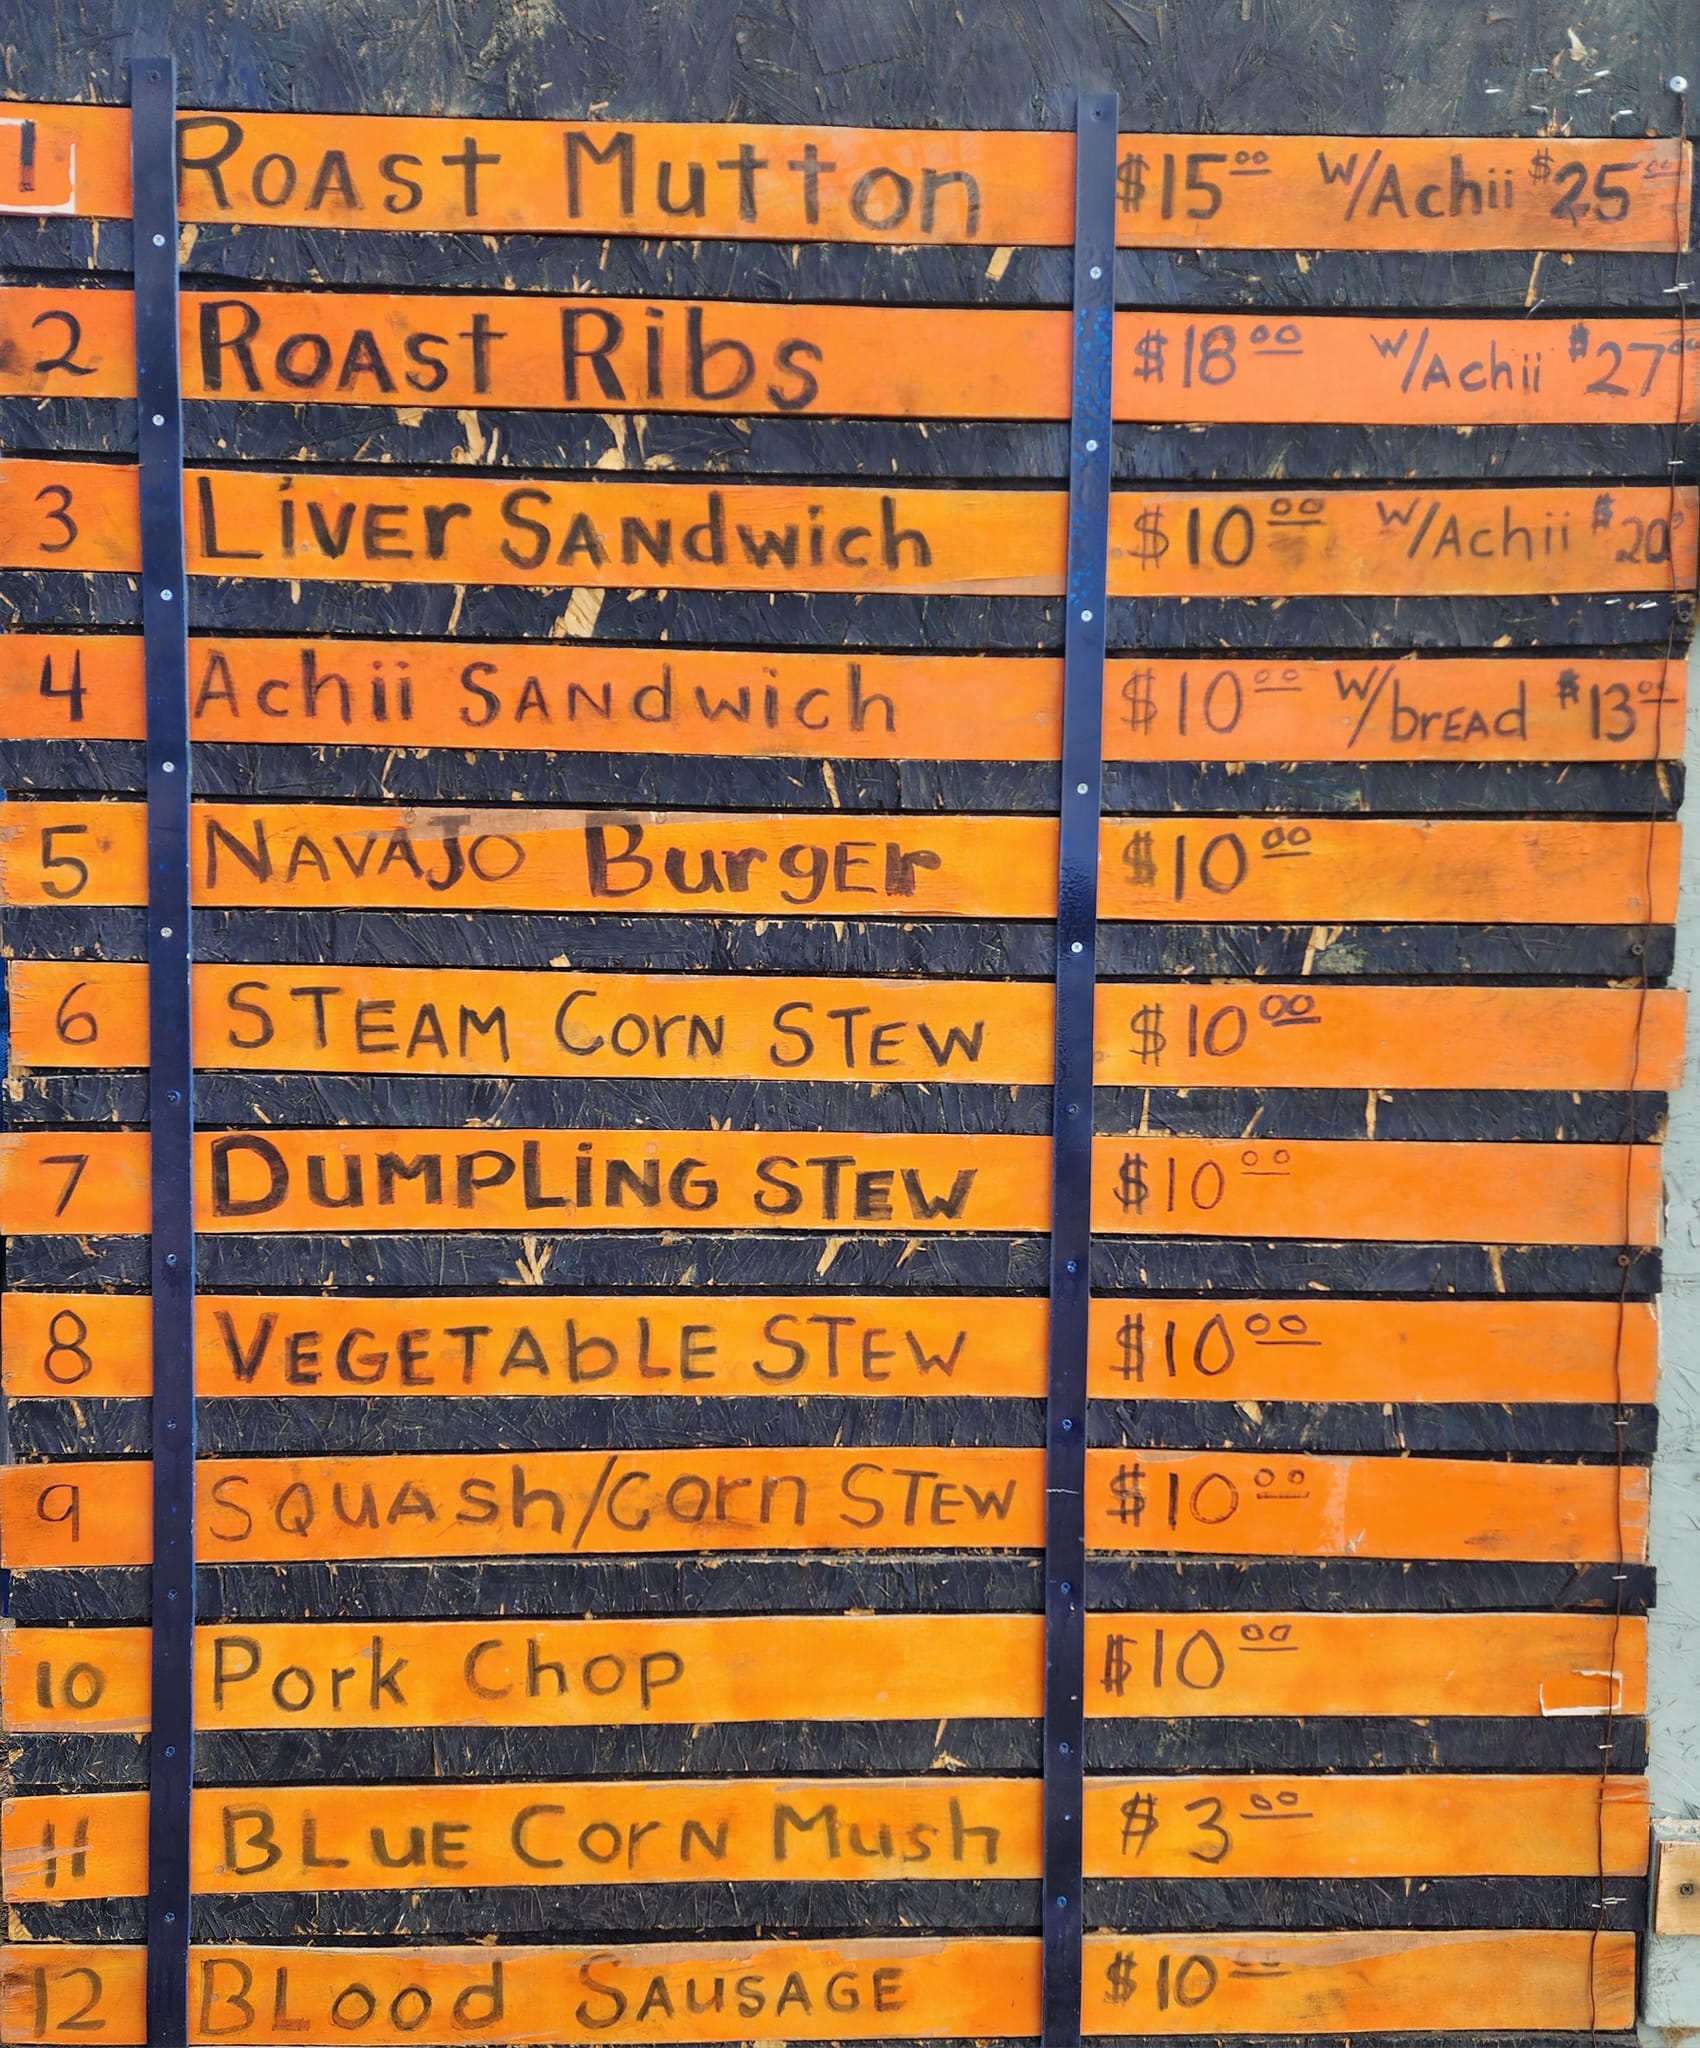 1 ROAST Mutton $15.00 w/Achii $25.00
2 ROAST Ribs $18.00 w/Achii $27.00
3 LiVEr SANdwich $10.00 w/Achii $20.00
4 Achii SANdwich $10.00 w/brEAd $13.00
5 NAVAJO BurgEr $10.00
6 STEAM Corn STEW $10.00
7 DUMPLiNG STEW $10.00
8 VEGETAbLE STEW $10.00
9 SQUASh/Corn STEW $10.00
10 Pork Chop $10.00
11 BLUE CorN Mush $3.00
12 BLood SAUSAGE $10.00